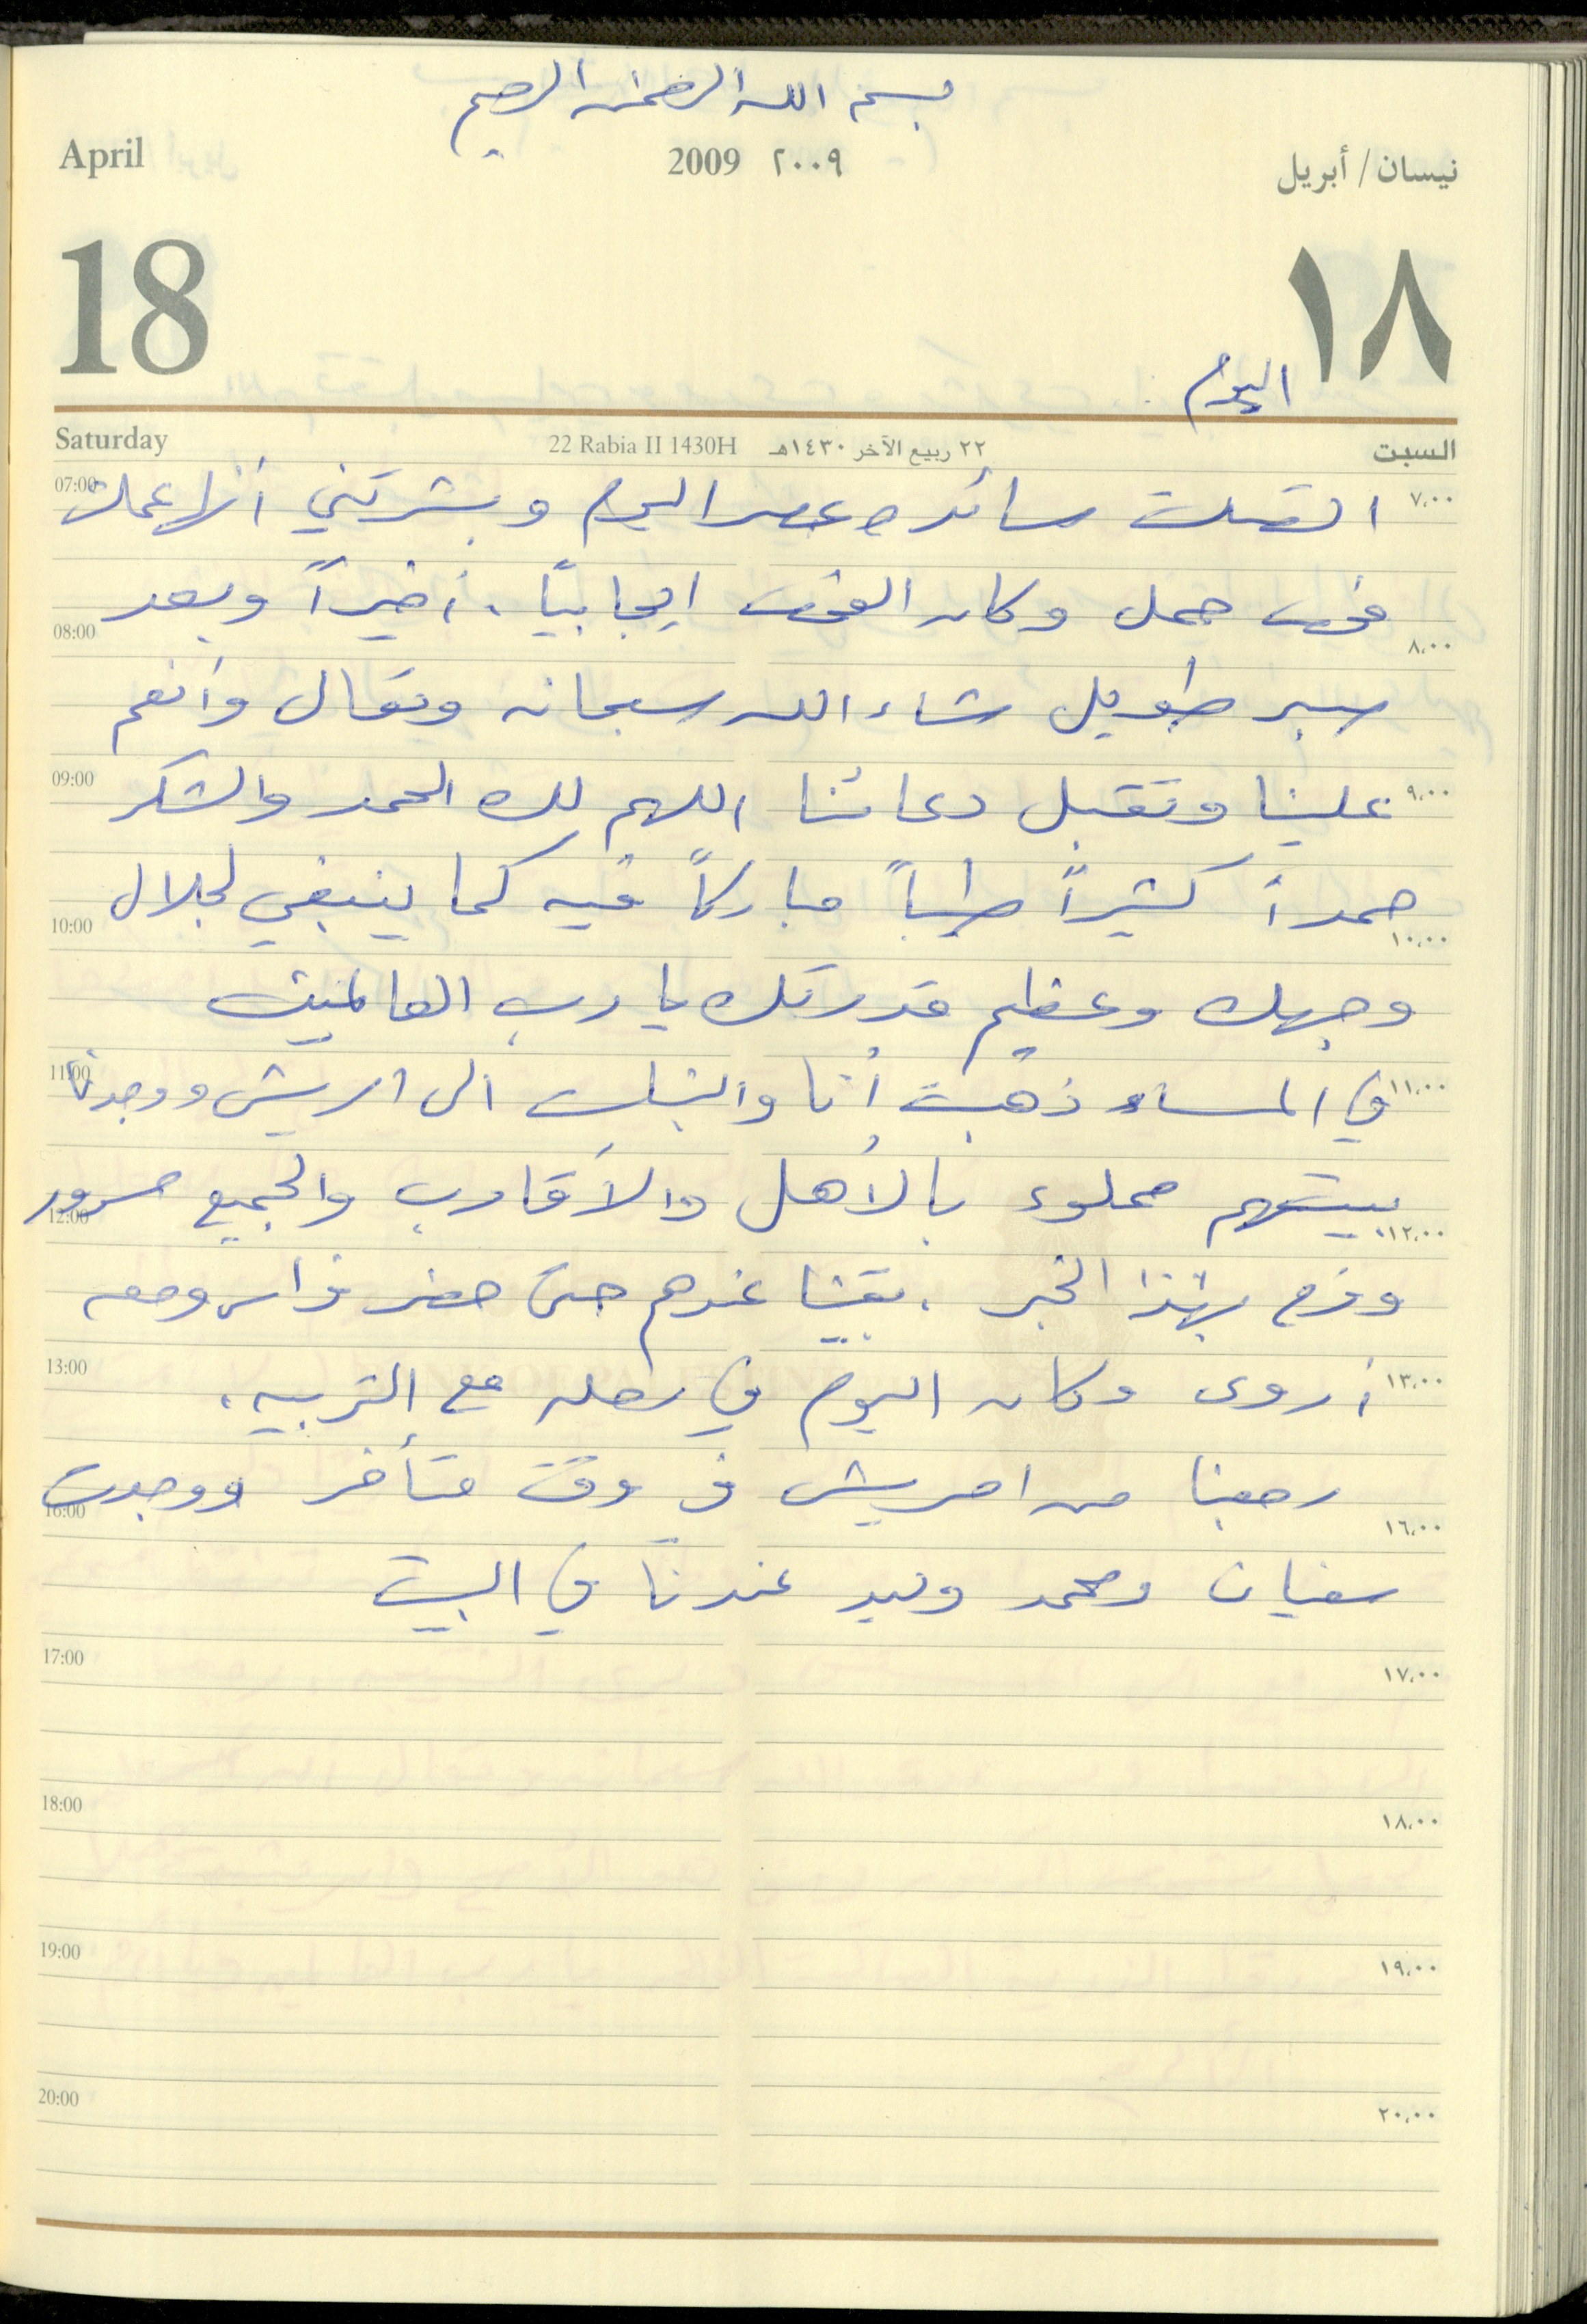 بسم الله الرحمن الرحيم
April 2009 ٢٠٠٩ نيسان / أبريل
18 ١٨
اليوم
Saturday 22 Rabia II 1430H ٢٢ ربيع الآخر ١٤٣٠هـ السبت
07:00 ٧,٠٠ اتصلت سائده عصر اليوم وبشرتني أنها عملت
فحص حمل وكان الفحص ايجابياً . أخيراً وبعد
08:00 ٨,٠٠
صبر طويل شاء الله سبحانه وتعالى وأنعم
09:00 ٩,٠٠ علينا وتقبل دعائنا اللهم لك الحمد والشكر
حمداً كثيراً طيباً مباركاً فيه كما ينبغي لجلال
10:00 ١٠,٠٠
وجهك وعظيم قدرتك يا رب العالمين
11:00 ١١,٠٠ في المساء ذهبت أنا والبنات الى امريش ووجدنا
بيتهم مملوء بالأهل والأقارب والجميع مسرور
12:00 ١٢,٠٠
وفرح بهذا الخبر . بقينا عندهم حتى حضر فراس ومعه
13:00 ١٣,٠٠ أروى وكان اليوم في رحله مع التربيه .
رجعنا من امريش في وقت متأخر ووجدت
16:00 ١٦,٠٠
سفيان ومحمد وليد عندنا في البيت
17:00 ١٧,٠٠
18:00 ١٨,٠٠
19:00 ١٩,٠٠
20:00 ٢٠,٠٠